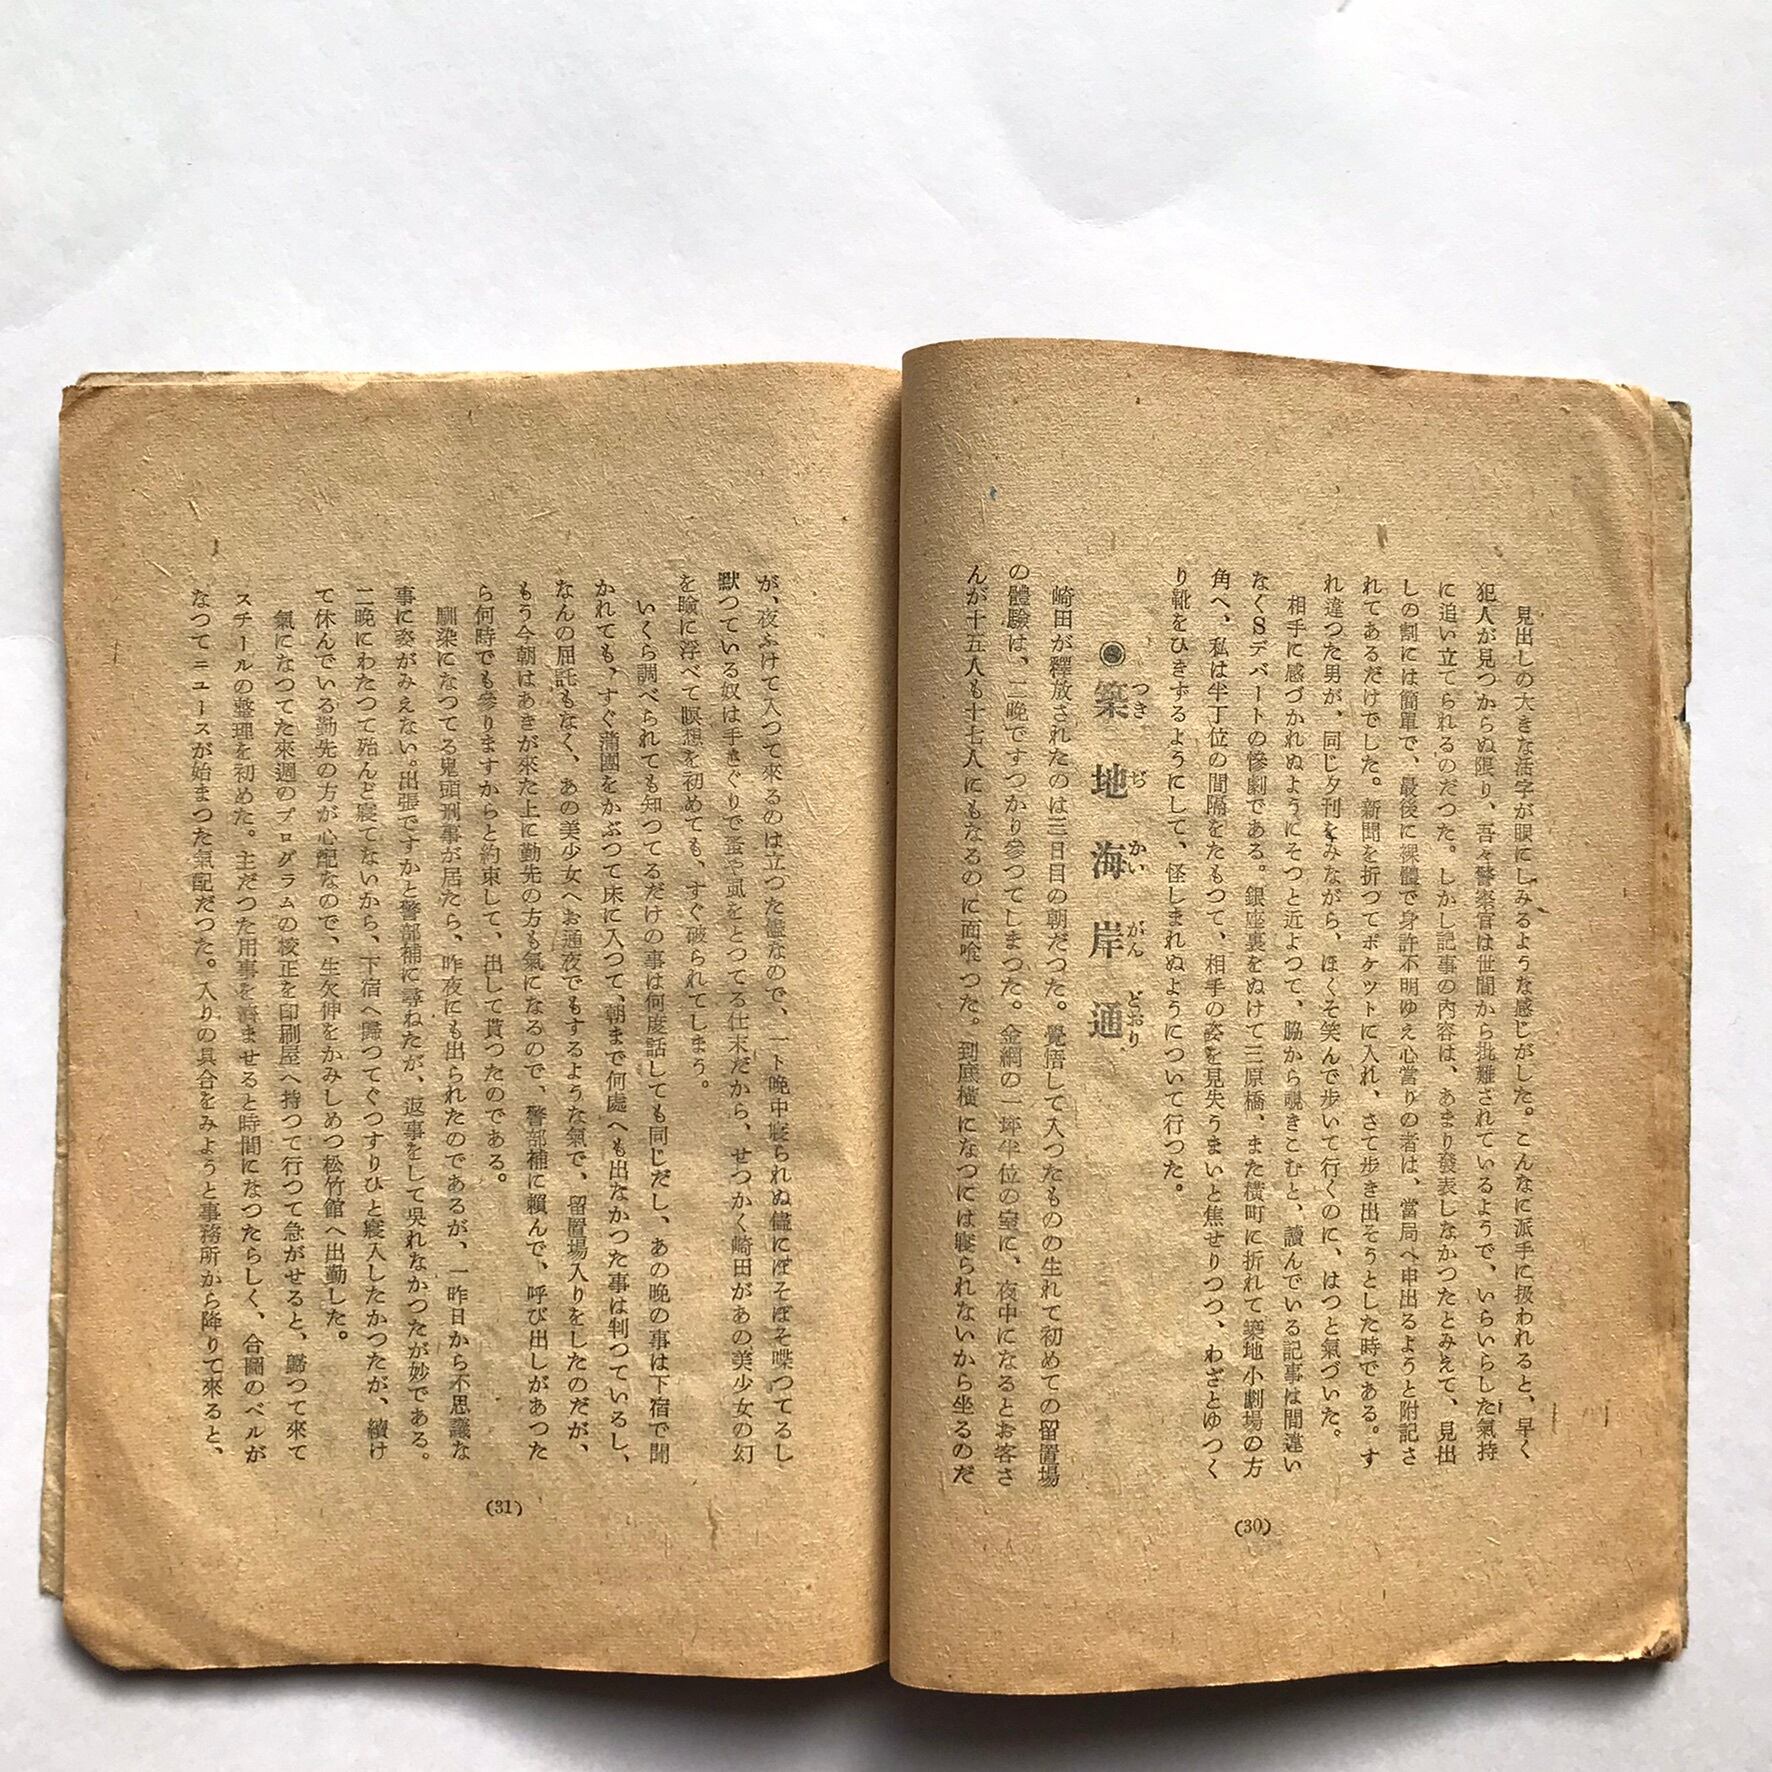 見出しの大きな活字が眼にしみるような感じがした。こんなに派手に扱われると、早く
犯人が見つからぬ限り、吾々警察官は世間から批難されているようで、いらいらした氣持
に追い立てられるのだつた。しかし記事の内容は、あまり發表しなかつたとみえて、見出
しの割には簡單で、最後に裸體で身許不明ゆえ心當りの者は、當局へ申出るようと附記さ
れてあるだけでした。新聞を折つてポケツトに入れ、さて歩き出そうとした時である。す
れ違つた男が、同じ夕刊をみながら、ほくそ笑んで歩いて行くのに、はつと氣づいた。
相手に感づかれぬようにそつと近よつて、脇から覗きこむと、讀んでいる記事は間違い
なくSデパートの慘劇である。銀座裏をぬけて三原橋、また横町に折れて築地小劇場の方
角へ、私は半丁位の間隔をたもつて、相手の姿を見失うまいと焦せりつつ、わざとゆつく
り靴をひきずるようにして、怪しまれぬようについて行つた。
築地海岸通
つきぢかいがんどおり
崎田が釋放されたのは三日目の朝だつた。覺悟して入つたものの生れて初めての留置場
の體驗は、二晩ですつかり參つてしまつた。金網の一坪半位の室に、夜中になるとお客さ
んが十五人も十七人にもなるのに面喰つた。到底横になつには寢られないから坐るのだ
(30)
が、夜ふけて入つて來るのは立つた儘なので、一ト晩中寢られぬ儘にぼそぼそ喋つてるし
默つている奴は手さぐりで蚤や虱をとつてる仕末だから、せつかく崎田があの美少女の幻
を瞼に浮べて瞑想を初めても、すぐ破られてしまう。
いくら調べられても知つてるだけの事は何度話しても同じだし、あの晩の事は下宿で聞
かれても、すぐ蒲團をかぶつて床に入つて、朝まで何處へも出なかつた事は判つているし、
なんの屈託もなく、あの美少女へお通夜でもするような氣で、留置場入りをしたのだが、
もう今朝はあきが來た上に勤先の方も氣になるので、警部補に頼んで、呼び出しがあつた
ら何時でも參りますからと約束して、出して貰つたのである。
馴染になつてる鬼頭刑事が居たら、昨夜にも出られたのであるが、一昨日から不思議な
事に姿がみえない。出張ですかと警部補に尋ねたが、返事をして呉れなかつたが妙である。
二晩にわたつて殆んど寢てないから、下宿へ歸つてぐつすりひと寢入したかつたが、續け
て休んでいる勤先の方が心配なので、生欠伸をかみしめつ松竹館へ出勤した。
氣になつてた來週のプログラムの校正を印刷屋へ持つて行つて急がせると、歸つて來て
スチールの整理を初めた。主だつた用事を濟ませると時間になつたらしく、合圖のベルが
なつてニュースが始まつた氣配だつた。入りの具合をみようと事務所から降りて來ると、
(31)